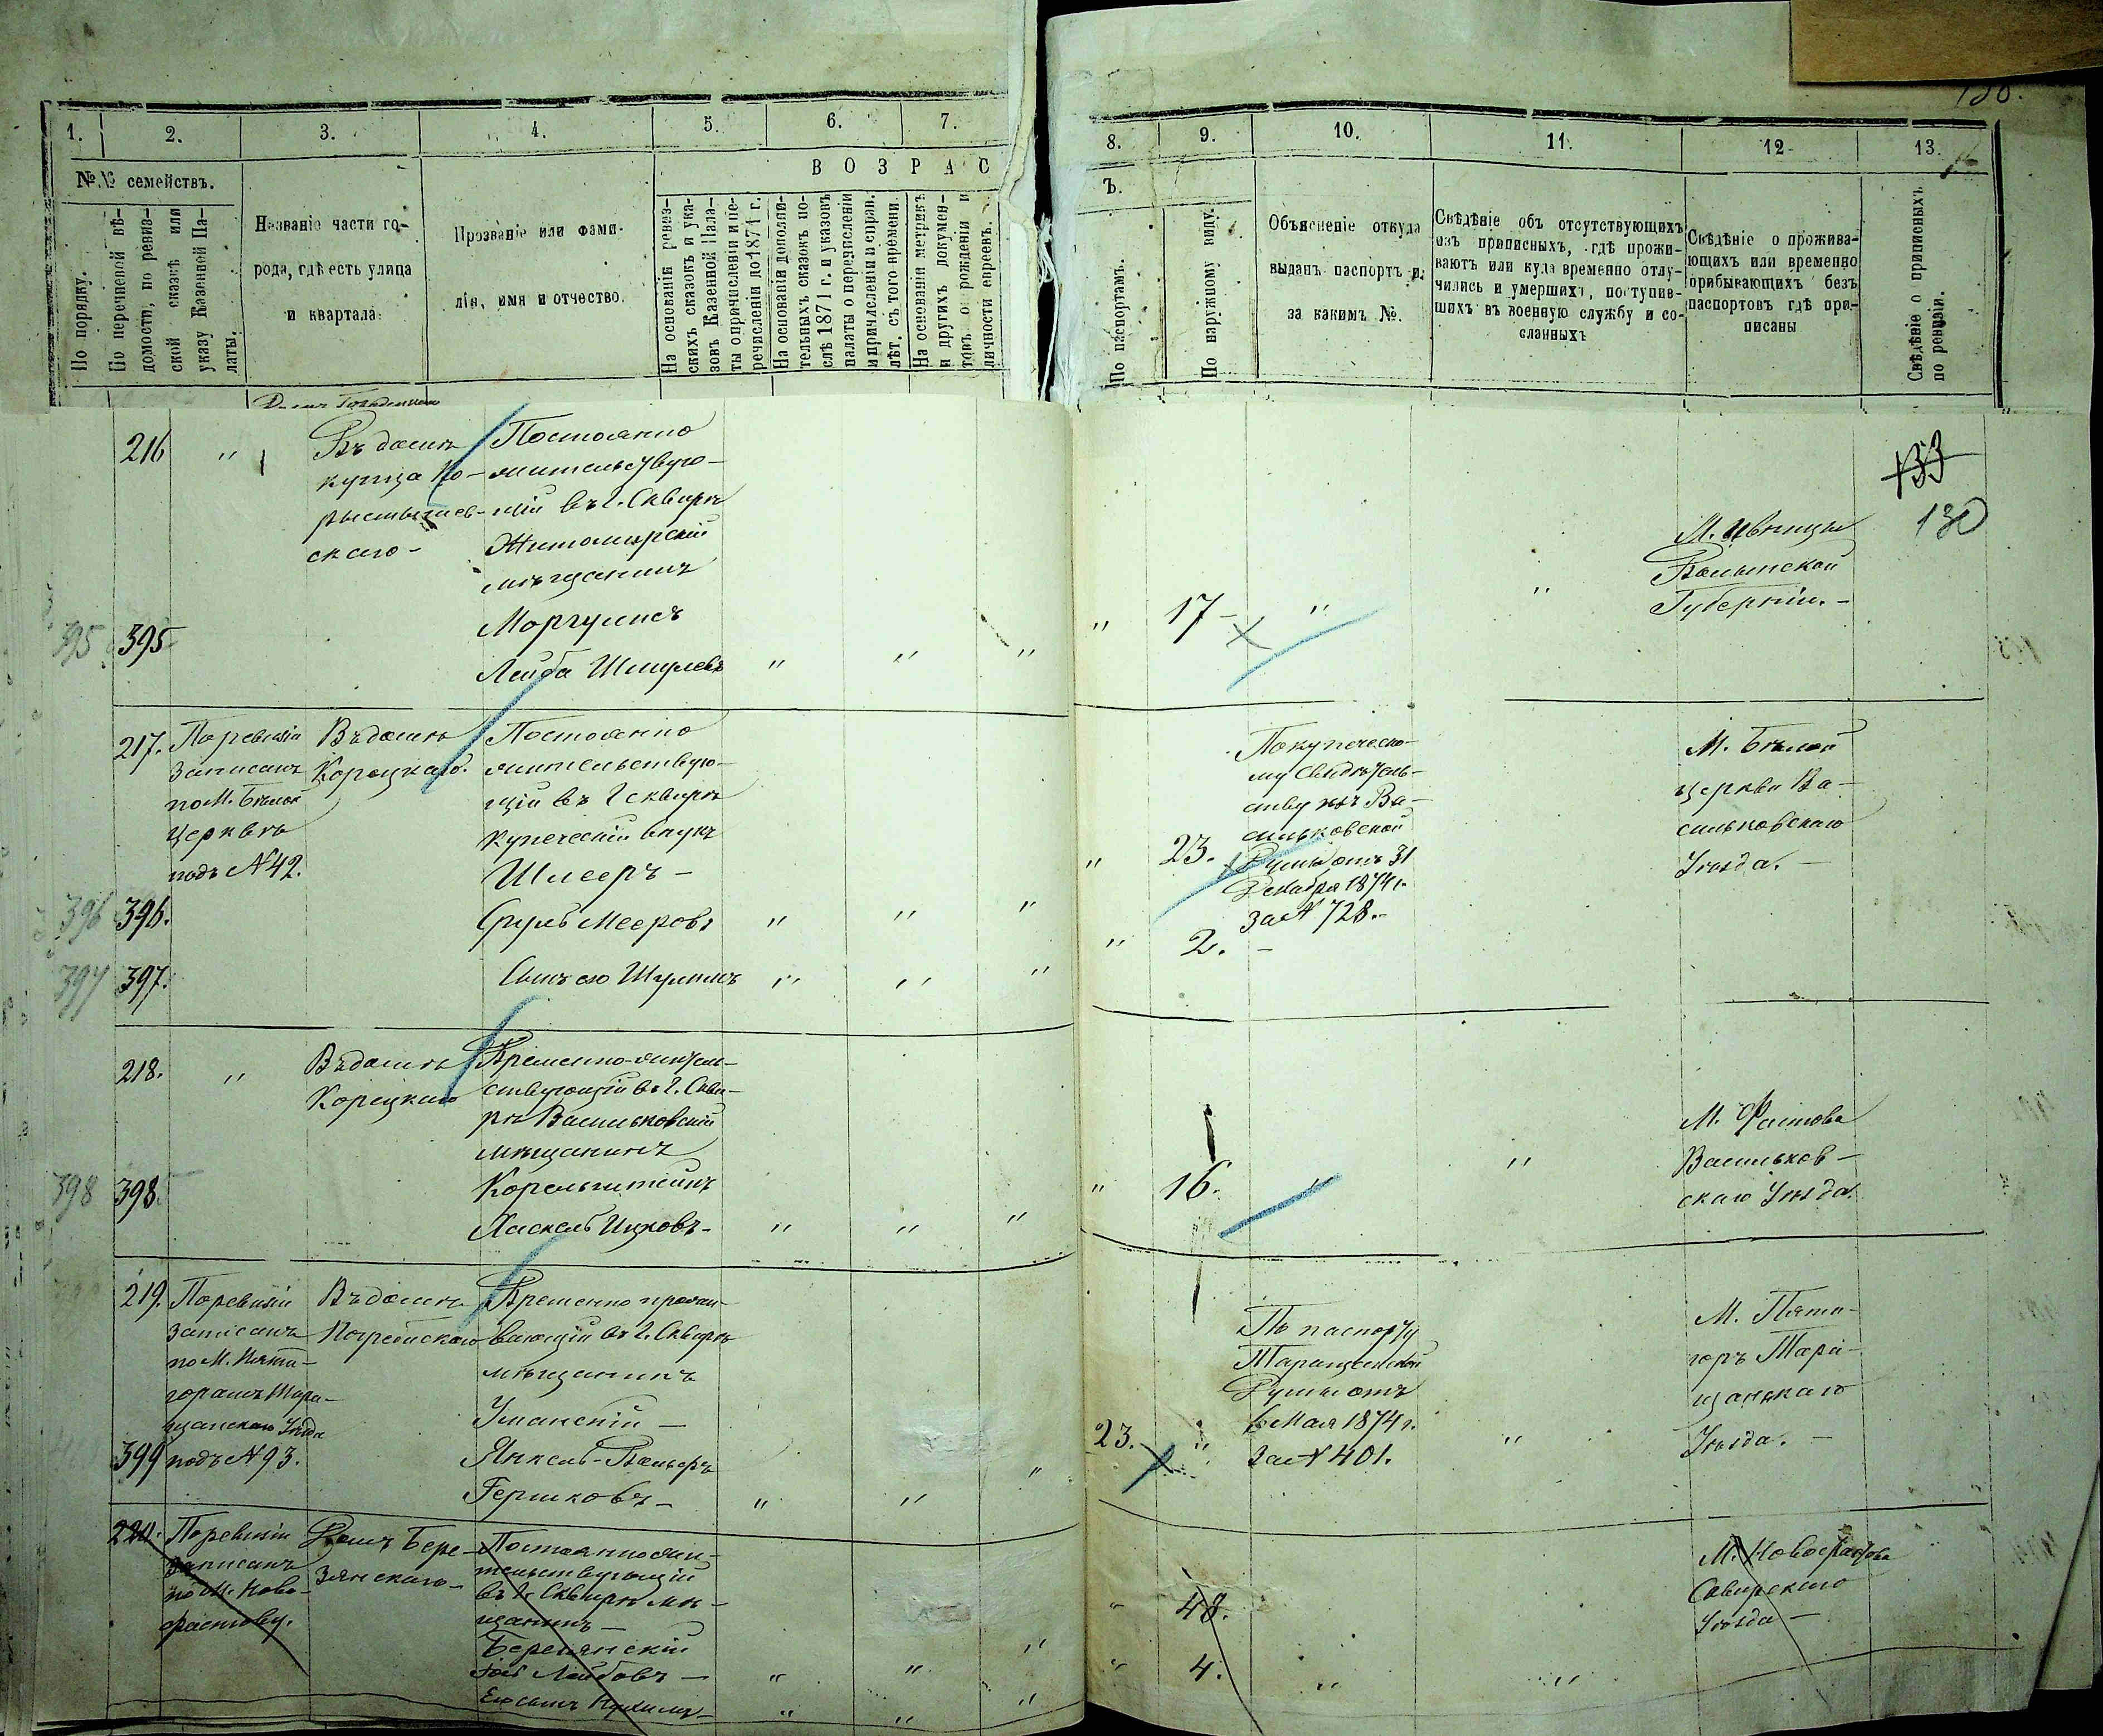 1. 2. 3. 4. 5. 6. 7.
№№ семействъ.
По порядку.
По перечневой вѣ-
домости, по ревиз-
ской сказкѣ или
указу Казенной Па-
латы.
Названіе части го-
рода, гдѣ есть улица
и квартала.
Прозваніе или фами-
лія, имя и отчество.
ВОЗРАС
На основаніи ревиз-
скихъ сказокъ и ука-
зовъ Казенной Пала-
ты о причисленіи и пе-
речисленіи до 1871 г.
На основаніи дополни-
тельныхъ сказокъ по-
слѣ 1871 г. и указовъ
палаты о перечисленіи
и причисленіи и справ.
лѣт. съ того времени.
На основаніи метрикъ
и другихъ докумен-
товъ о рожденіи и
личности евреевъ.
216 "
Въ домѣ
купца
скаго -
Постоянно
жительствую-
щій въ г. Сквирѣ
Житомирскій
мѣщанинъ
Моргулисъ
395 395
Лейба Шмулевъ " " "
217. По ревизіи
записанъ
по М. Бѣлой
Церквѣ
подъ №42.
Въ домѣ
Корецкаго.
Постоянно
жительствую-
щій въ г Сквирѣ
купеческій внукъ
Шлееръ -
396 396.
Сруль Мееровъ " " "
397 397.
Сынъ его Шулимъ " " "
218. "
Въ домѣ
Корецкаго
Временно-житель-
ствующій въ г. Скви-
рѣ Васильковскій
мѣщанинъ
398 398.
Хаскель Ицковъ - " " "
219. По ревизіи
записанъ
по М. Пяти-
горамъ Тара-
щанскаго Уѣзда
399 подъ №93.
Въ домѣ
Погребискаго
Временно прожи-
вающій въ г. Сквирѣ
мѣщанинъ
Уманскій -
Янкель-
Гершковъ - " " "
По ревизіи
записанъ
по М. Ново-
фастову.
Домъ Бере-
зянскаго -
Постоянно жи-
тельствующій
въ г. Сквирѣ мѣ-
щанинъ -
Березянскій
Лейбовъ - " " "
Его сынъ " " "
8. 9. 10. 11. 12 13.
Ъ.
По паспортамъ.
По наружному виду.
Объясненіе откуда
выданъ паспортъ и
за какимъ №.
Свѣдѣніе объ отсутствующихъ
изъ приписныхъ, гдѣ прожи-
ваютъ или куда временно отлу-
чились и умершихъ, поступив-
шихъ въ военную службу и со-
сланныхъ
Свѣдѣніе о прожива-
ющихъ или временно
прибывающихъ безъ
паспортовъ гдѣ при-
писаны
Свѣдѣніе о приписныхъ
по ревизіи.
133
130
М. Ивницы
Волынской
Губерніи. -
" 17 - " "
По купеческо-
му свидѣтель-
ству изъ Ва-
сильковской
Думы отъ 31
Декабря 1874 г.
за № 728. -
" 23.
М. Бѣлой
церкви Ва-
сильковскаго
Уѣзда. -
" 2. -
" 16. " "
М. Фастова
Васильков-
скаго Уѣзда.
По паспорту
Таращанской
Думы отъ
6 Мая 1874 г.
За № 401.
23. " "
М. Пяти-
горъ Тара-
щанскаго
Уѣзда. -
" 48.
" 4. " "
М. Новофастова
Сквирскаго
Уѣзда -